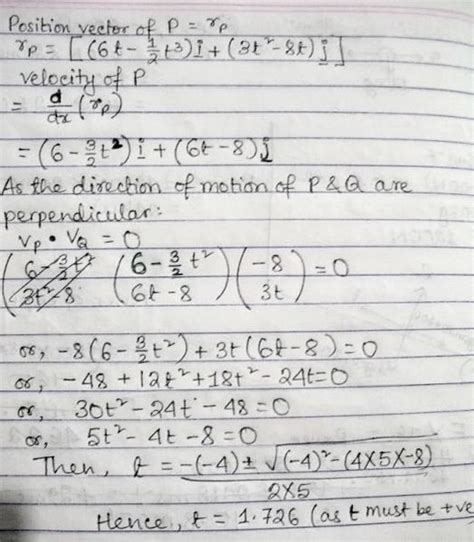 Position vector of P = r_P
r_P = [(6t - 1/2 t³) i + (3t² - 8t) j]
velocity of P
= d/dx (r_P)
= (6 - 3/2 t²) i + (6t - 8) j
As the direction of motion of P & Q are
perpendicular:
V_P • V_Q = 0
(6 - 3/2 t² / 3t² - 8) (6 - 3/2 t² / 6t - 8) (-8 / 3t) = 0
or, -8(6 - 3/2 t²) + 3t(6t - 8) = 0
or, -48 + 12t² + 18t² - 24t = 0
or, 30t² - 24t - 48 = 0
or, 5t² - 4t - 8 = 0
Then, t = -(-4) ± √(-4)² - (4×5×-8) / 2×5
Hence, t = 1.726 (as t must be +ve